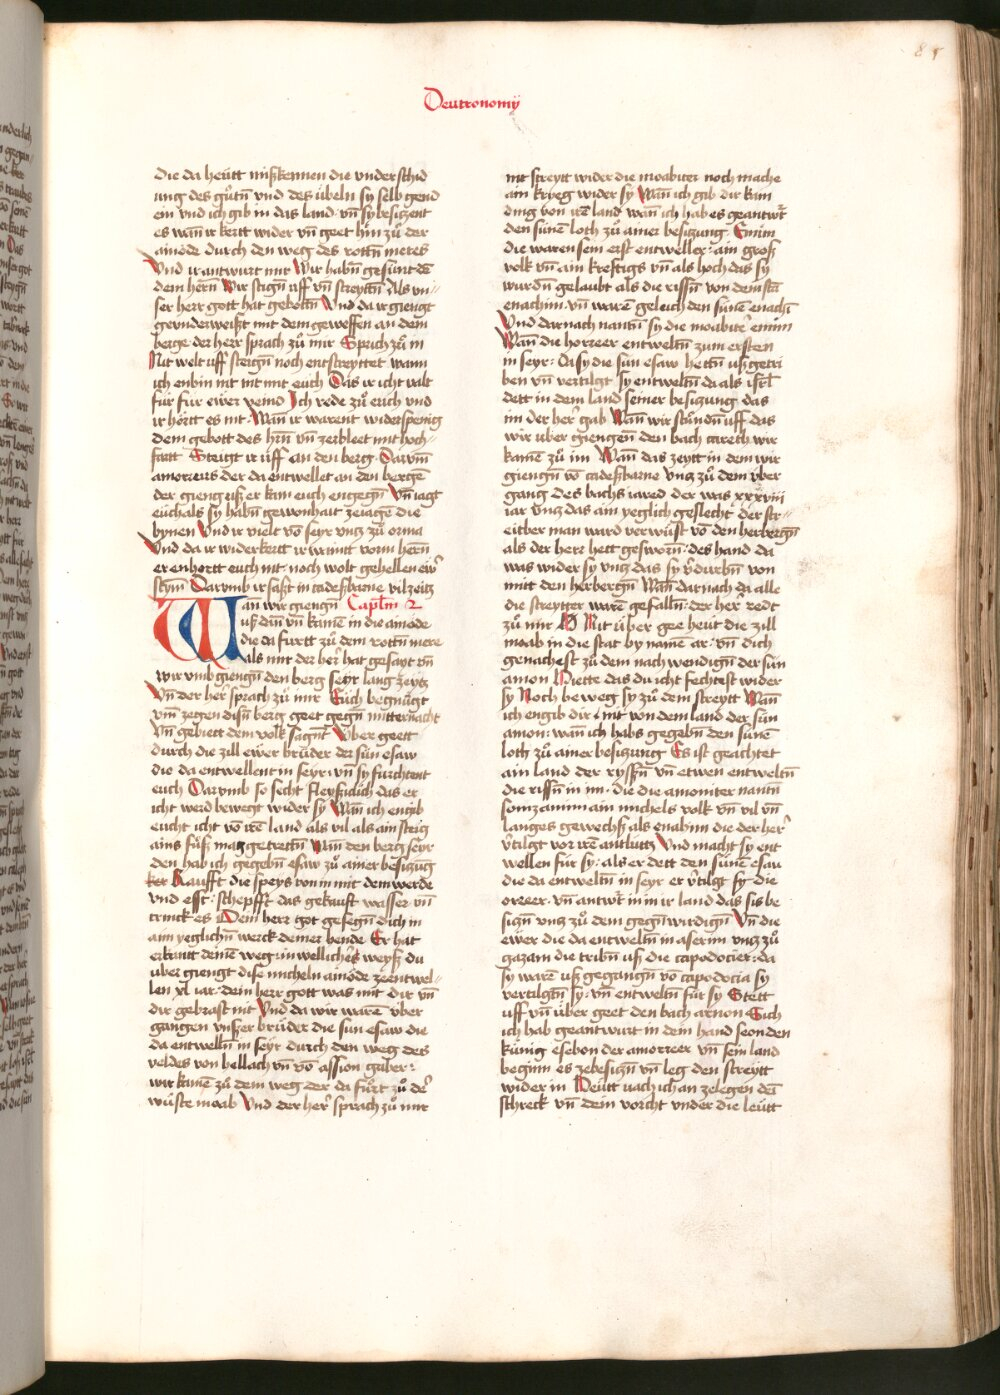 85
Deutronomÿ
die da heütt mißkennen die vnderschid
ung des gůtn̄ vnd des übeln sy selb gend
ein vnd ich gib in das land · vn̄ sy besiczent
es wan̄ ir kertt wider vn̄ geet hin zů der
ainöde durch den weg des rottn̄ meres
Vnd ir antwurt mir Wir habn̄ gesünt dē
dem hern̄ Wir stign̄ uff vn̄ streyttn̄ Als vn=
ser herr gott hat gebottn̄ Vnd da ir gienge
gevnderweißt mit dem geweffen an dem
berge · der herr sprach zů mir Sprich zů in
Nit welt uff steign̄ noch enstreyttet wann
ich enbin nit mit euch Das ir icht valt
für für ewer veind Ich rede zů euch vnd
ir hörtt es nit · Wan̄ ir warent widerspenig
dem gebott des hrn̄ vn̄ zerbleet mit hoch=
fartt Steigt ir uff an den berg · Darvm̄
amorreus der da entwellet an den bergē
der gieng uß er kam euch engegn̄ Vn̄ iagt
euch als sy habn̄ gewonhait zeiagē die
bynen Vnd ir vielt vō seyr vncz zů orma
Vnd da ir widerkertt ir wainit vorm hern̄
er enhortt euch nit · noch wolt gehellen ewr̄
stym̄ Darvmb ir saßt in cadeßbarne vil zeitz
Wan wir giengn̄ Capl̄m 2
uß dan̄ vn̄ kamē in die ainöde
die da fürtt zů dem rottn̄ mere
als mir der her̄ hat gesayt vn̄
wir vmb giengn̄ den berg seyr lang zeytz
Vn̄ der her̄ sprach zů mir Euch begnügt
vm̄ zegen disn̄ berg geet gegn̄ mitternacht
Vn̄ gebiett dem volk sagnt Vber geett
durch die zill ewer brüder der sün esaw
die da entwellent in seyr · vn̄ sy fürchtent
euch Darvmb so secht fleyßiclich das er
icht werd bewegt wider sy Wan̄ ich engib
eucht icht vō irē land als vil als ain steig
ains fůß mag getrettn̄ Wan̄ den berg seyr
den hab ich gegebn̄ esaw zů ainer besiczūg
Kaufft die speys von in mit dem werde
vnd esst · schepfft das gekauft wasser vn̄
trinck es Dein herr got gesegn̄ dich in
aim yeglichn̄ werck deiner hende Er hat
erkantt deinē weg · in wellicher weyß du
über giengt dise micheln ainöde zeentwel=
len xl iar · dein herr gott was mit dir vn̄
dir gebrast nit Vnd da wir warē über
gangen vnßer brüder die sün esaw die
da entweln̄ in seyr durch den weg des
veldes von hellach vn̄ vō assion gaber ·
wir kamē zů dem weg der da fürt zů der̄
wüste moab Vnd der her̄ sprach zů mir
nit streytt wider die moabiter noch mache
ain krieg wider sy Wan̄ ich gib dir kain
ding von irē land wan̄ ich hab es geantwr̄t
den sünē loth zů ainer besiczung · Emim
die waren sein erst entweller · ain groß
volk vn̄ ain kreftigs vn̄ als hoch das sy
wurdn̄ gelaubt als die rissn̄ von dem stā
enachim · vn̄ warē geleich den sünē enachī
Vnd darnach nantn̄ sy die moabitē emim
Wan̄ die horreer entweltn̄ zum ersten
in seyr · da sy die sün esaw hettn̄ uß getri
ben vn̄ vertilgt sy entweltn̄ da als isr̄l
dett in dem land seiner besiczung das
im der her̄ gab Wan̄ wir stůndn̄ uff das
wir über giengen den bach zareth wir
kamē zů im Wan̄ das zeytt in dem wir
giengn̄ vō cadeßbarne vncz zů dem über
gang des bachs iared der was xxxviij
iar vncz das ain yeglich geslecht der str=
eitber man ward verwüst vō den herbergn̄
als der herr hett gesworn̄ · des hand da
was wider sy vncz das sy v̄durbn̄ von
mitt den herbergn̄ Wan̄ darnach da alle
die streytter warē gefalln̄ · der her̄ redt
zů mir Mit über gee heüt die zill
moab in die stat by namē ar · vn̄ dich
genachest zů dem nach wendign̄ der sün
amon Hiette das du icht fechtest wider
sy Noch beweg sy zů dem streytt Wan̄
ich engib dir nit von dem land der sün
amon · wan̄ ich habs gegebn̄ den sünē
loth zů ainer besiczung Es ist geachtet
ain land der ryssn̄ vn̄ etwen entweltn̄
die rissn̄ in im · die die amoniter nantn̄
somzanim ain michels volk vn̄ vil vn̄
langes gewechß als enahim die der her̄
v̄tilgt vor irē antluttz Vnd macht sy ent
wellen für sy · als er dett den sünē esau
die da entweltn̄ in seyr er v̄tilgt sy die
orreer · vn̄ antwr̄t in ir land das sis be
siczn̄ vncz zů dem gegn̄wirdign̄ Vn̄ die
ewer die da entweltn̄ in aserim vncz zů
gazam die tribn̄ uß die capodocier · da
sy warē uß gegangn̄ vō capodocia sy
vertilgtn̄ sy · vn̄ entweltn̄ für sy Stett
uff vn̄ über geet den bach arnon Sich
ich hab geantwurt in dein hand seon den
künig esebon der amorreer vn̄ sein land
beginn es zebesiczn̄ vn̄ leg den streytt
wider in Heütt vach ich an zelegen den̄
schreck vn̄ dein vorcht vnder die leütt